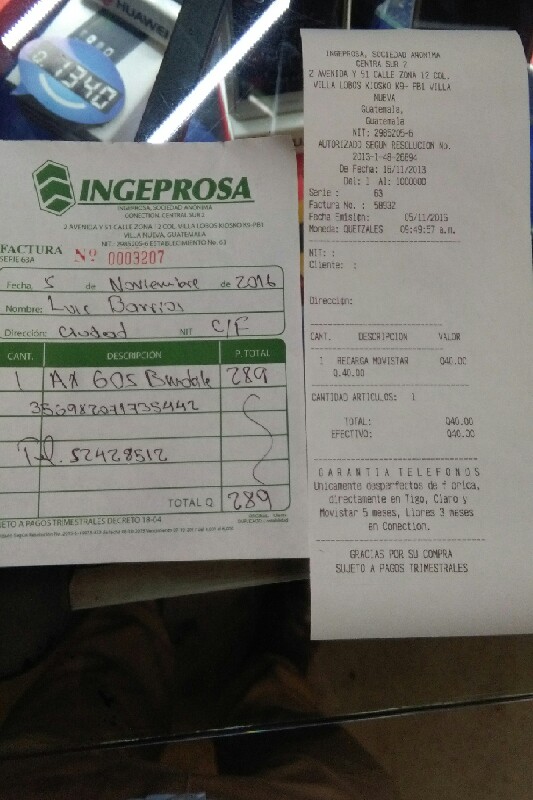 HUAWEI
1340
INGEPROSA
INGEPROSA, SOCIEDAD ANONIMA
CONECTION CENTRAL SUR 2
2 AVENIDA Y 51 CALLES ZONA 12 COL. VILLA LOBOS KIOSKO K9-PB1
VILLA NUEVA, GUATEMALA
NIT: 2985205-6 ESTABLECIMIENTO No. 63
FACTURA
SERIE 63A
Nº 0003207
Fecha 5 de Noviembre de 2016
Nombre: Luis Barrios
Dirección: Ciudad NIT C/F
CANT. DESCRIPCIÓN P. TOTAL
1 AX 605 289
Tel. 52428512
TOTAL Q. 289
ETO A PAGOS TRIMESTRALES DECRETO 18-04
INGEPROSA, SOCIEDAD ANONIMA
CENTRA SUR 2
2 AVENIDA Y 51 CALLE ZONA 12 COL.
VILLA LOBOS KIOSKO K9- PB1 VILLA
NUEVA
Guatemala,
Guatemala
NIT: 2985205-6
AUTORIZADO SEGUN RESOLUCION No.
2013-1-48-26894
De Fecha: 16/11/2013
Del: 1 Al: 1000000
Serie : 63
Factura No. : 58932
Fecha Emision: 05/11/2016
Moneda: QUETZALES 09:49:57 a.m.
NIT: :
Cliente: :
Dirección:
CANT. DESCRIPCION VALOR
1 RECARGA MOVISTAR Q40.00
Q.40.00
CANTIDAD ARTICULOS: 1
TOTAL: Q40.00
EFECTIVO: Q40.00
GARANTIA TELEFONOS
Unicamente desperfectos de f brica,
directamente en Tigo, Claro y
Movistar 5 meses, Libres 3 meses
en Conection.
GRACIAS POR SU COMPRA
SUJETO A PAGOS TRIMESTRALES